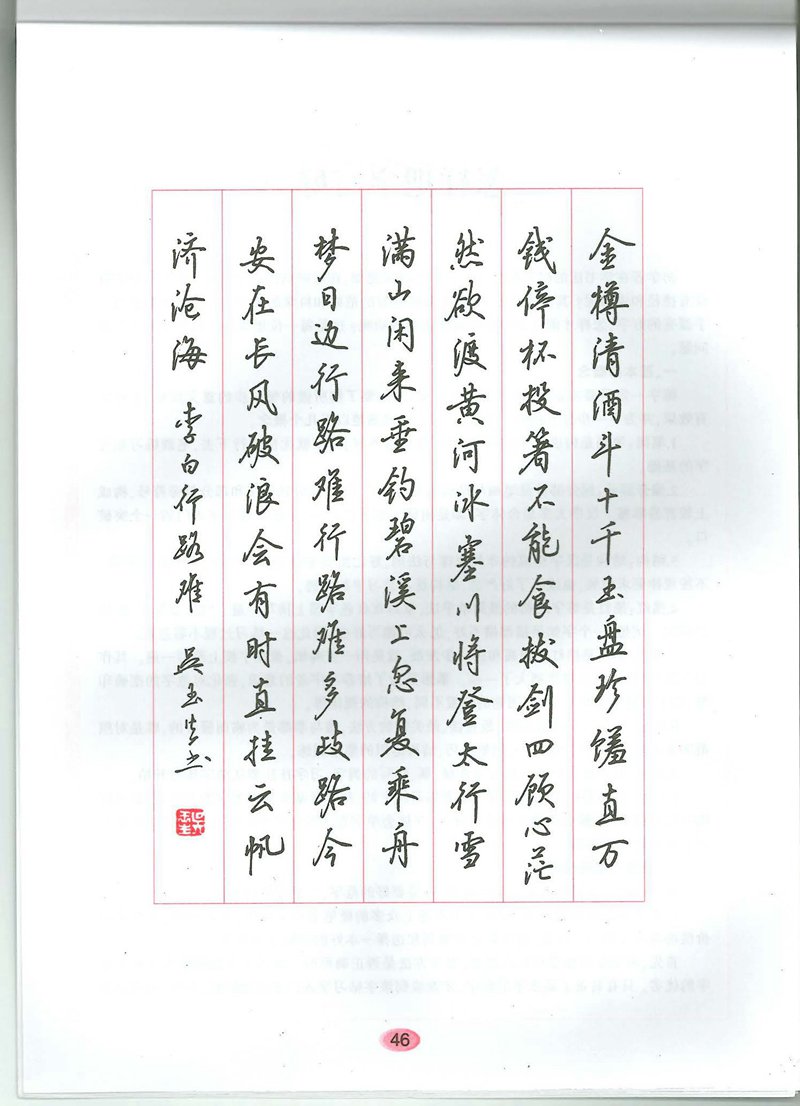 金樽清酒斗十千玉盘珍馐直万
钱停杯投箸不能食拔剑四顾心茫
然欲渡黄河冰塞川将登太行雪
满山闲来垂钓碧溪上忽复乘舟
梦日边行路难行路难多歧路今
安在长风破浪会有时直挂云帆
济沧海 李白行路难 吴玉生书
46